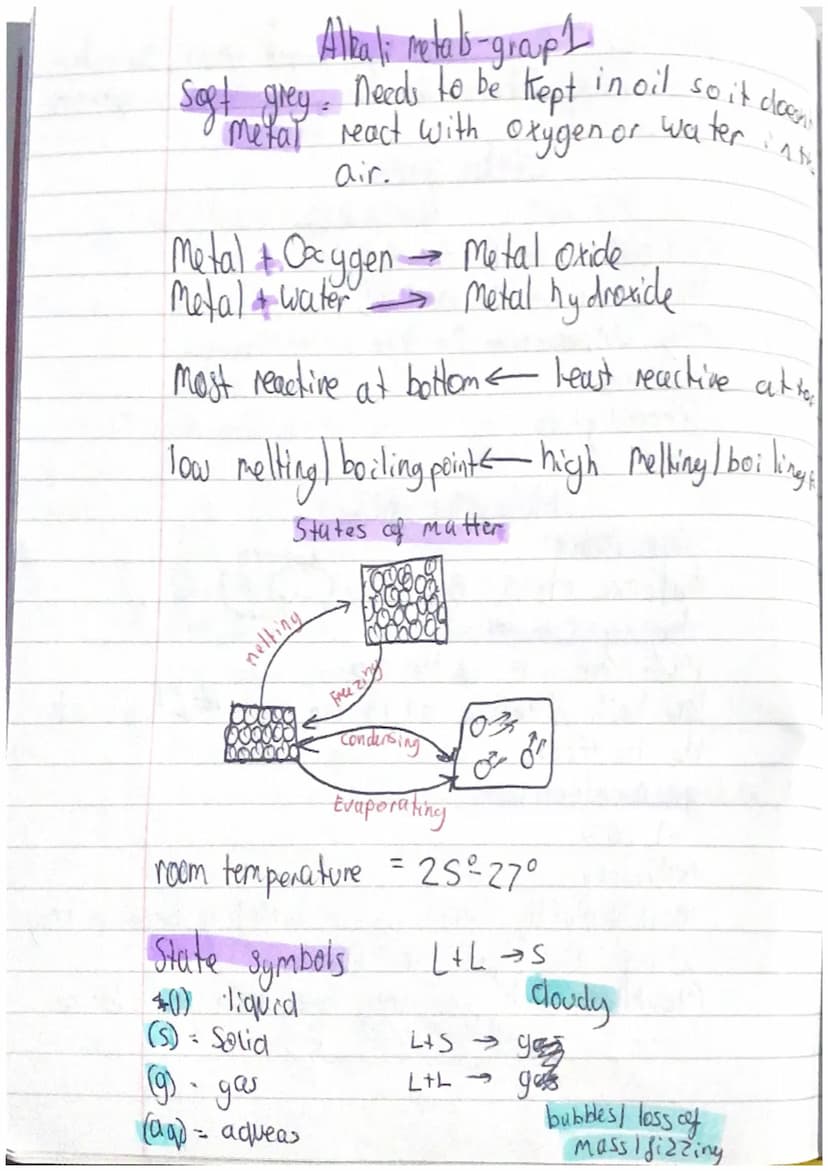 Alkali metals-group 1
Soft grey = Needs to be kept in oil so it doesn
metal react with oxygen or water in th
air.
Metal + Oxygen → Metal oxide
Metal + water → Metal hydroxide
Most reactive at bottom ← Least reactive at to
low melting/boiling point ← high melting/boiling
States of matter
melting
Freezing
condensing
Evaporating
room temperature = 25°-27°
State symbols L+L → S
(l) liquid cloudy
(s) = Solid L+S → gas
(g) = gas L+L → gas
(aq) = aqueas bubbles/loss of
mass/fizzing